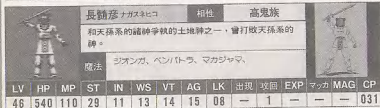 長髄彦 ナガスネヒコ 相性 高鬼族
和天孫系的諸神爭執的土地神之一，曾打敗天孫系的
神。
魔法 ジオンガ、ペンパトラ、マカジャマ、
LV HP MP ST IN WS VT AG LK 出現 攻回 EXP マッカ MAG CP
46 540 110 29 11 13 14 15 08 — 1 — — — 031